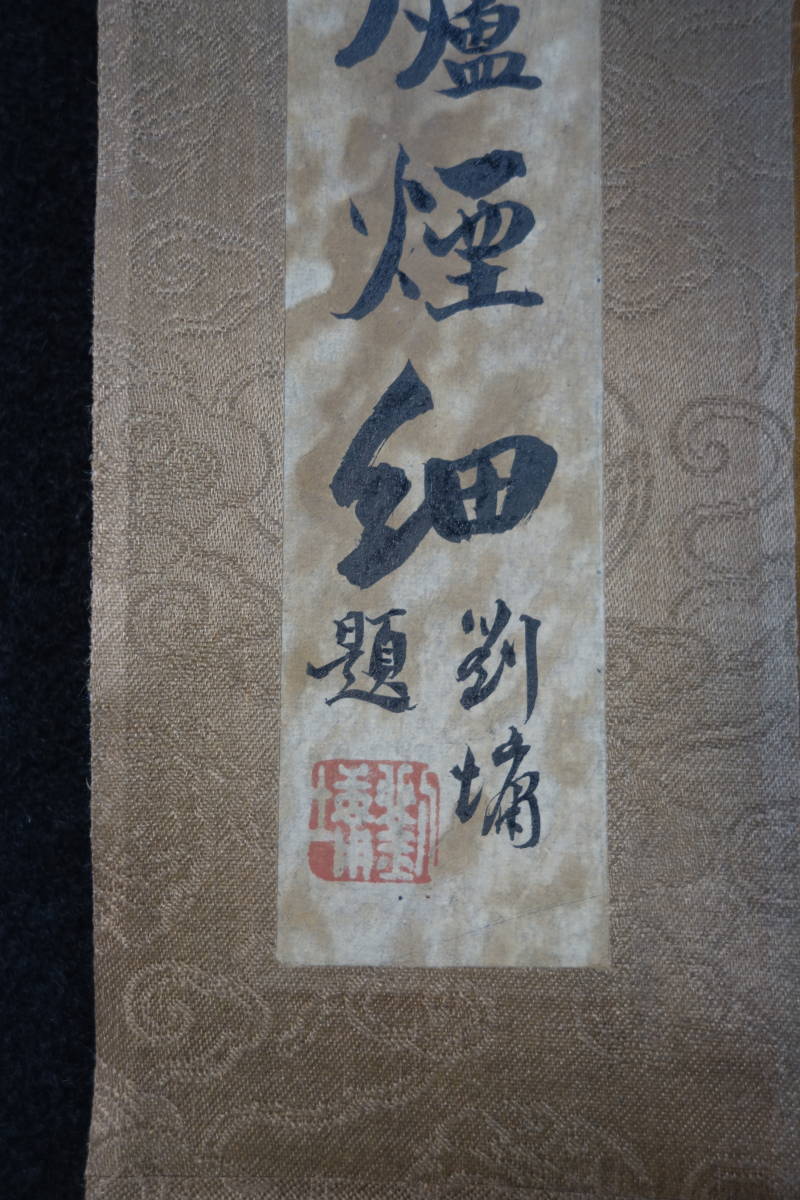 爐煙細
劉墉
題
劉墉